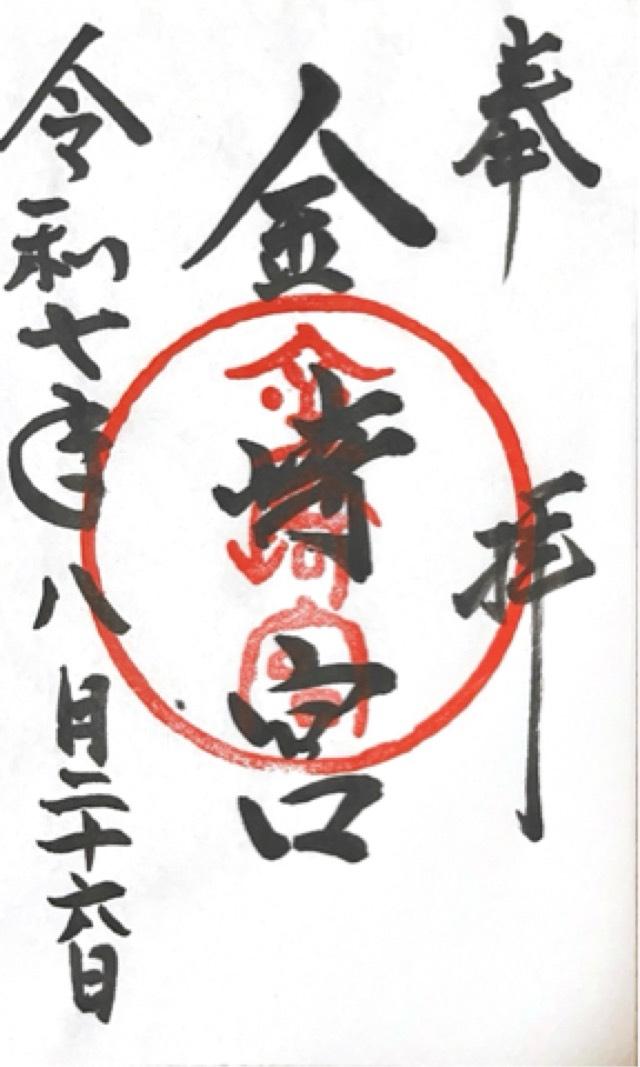 奉拝
金崎宮
金崎宮
令和七年八月二十六日